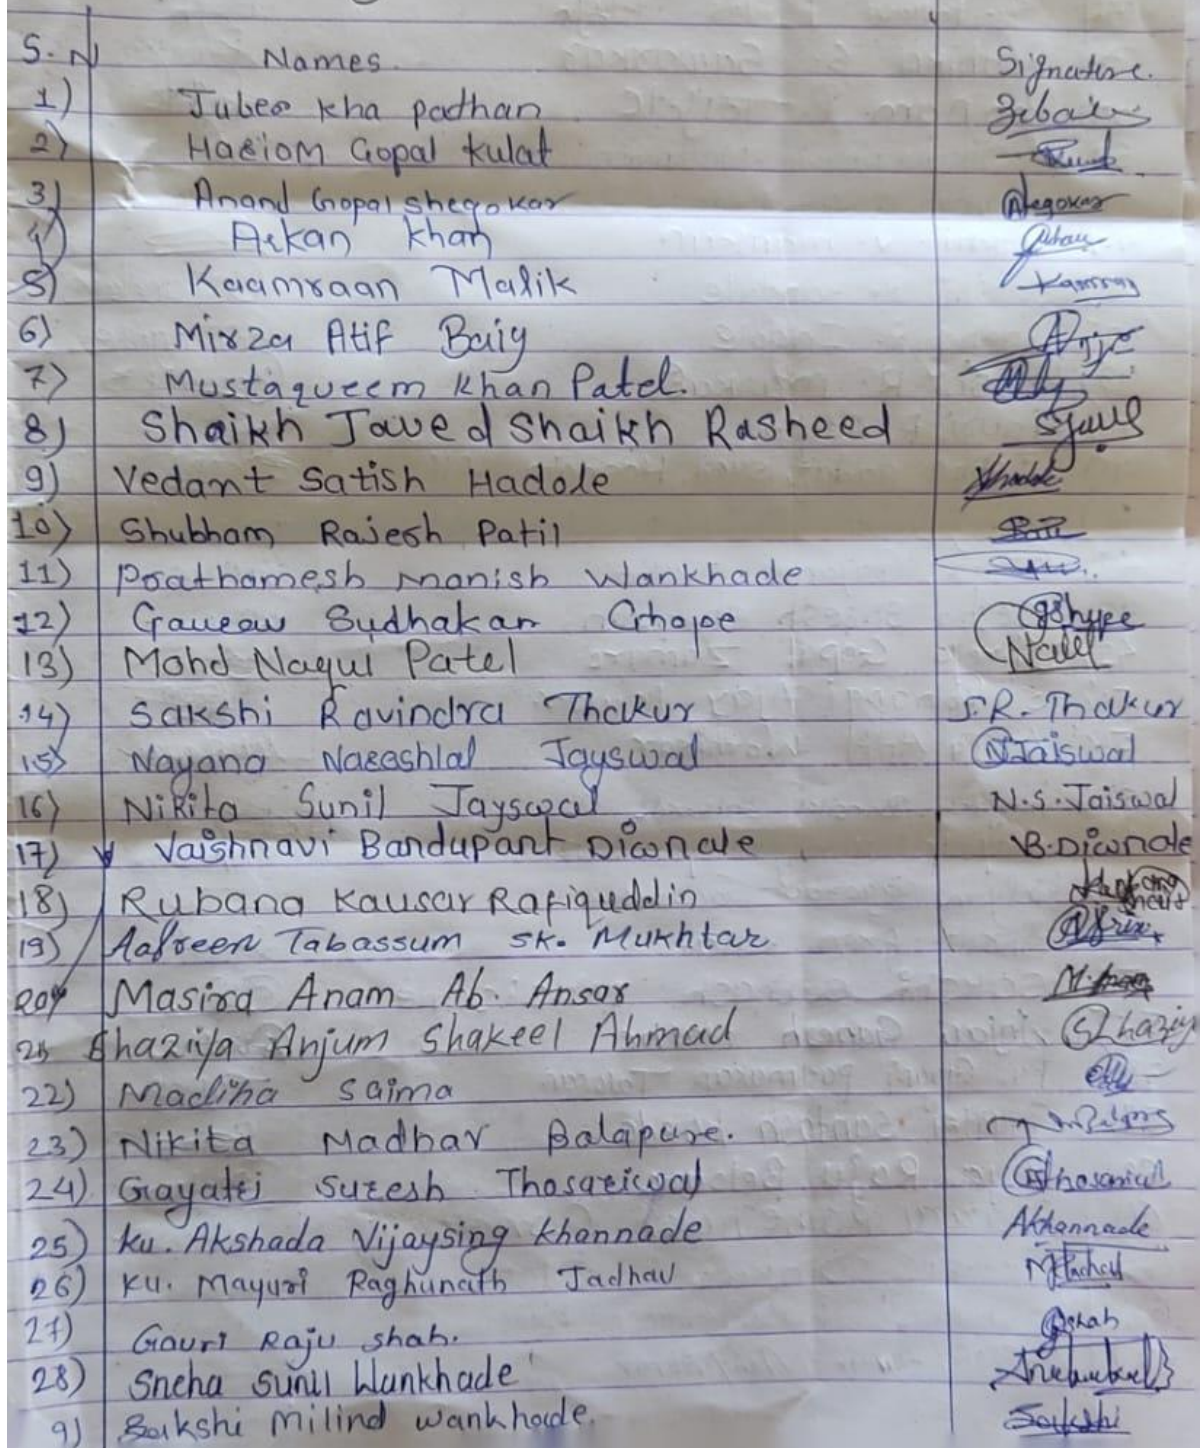 S.N Names Signature.
1) Juber kha pathan
2) Hariom Gopal Kulat
3) Anand Gopal Shegokar Shegokar
4) Arkan Khan
5) Kaamraan Malik Kamran
6) Mirza Atif Baig
7) Mustaqueem Khan Patel.
8) Shaikh Javed Shaikh Rasheed
9) Vedant Satish Hadole
10) Shubham Rajesh Patil
11) Prathamesh manish Wankhade
12) Gaurav Sudhakar
13) Mohd Naqui Patel
14) Sakshi Ravindra Thakur S.R. Thakur
15) Nayana Nareshlal Jayswal NJaiswal
16) Nikita Sunil Jayswal N.S.Jaiswal
17) Vaishnavi Bandupant Diwnale B.Diwnale
18) Rubana Kausar Rafiquddin
19) Aafreen Tabassum SK. Mukhtar
20) Masira Anam Ab. Ansar
21 Shaziya Anjum Shakeel Ahmad Shaziy
22) Madiha Saima
23) Nikita Madhav Balapure.
24) Gayatri Suresh Thosariwal
25) Ku. Akshada Vijaysing Khannade AKhannade
26) Ku. Mayuri Raghunath Jadhav
27) Gauri Raju shah. Gshah
28) Sneha Sunil Wankhade
9) Sakshi Milind wankhade. Sakshi